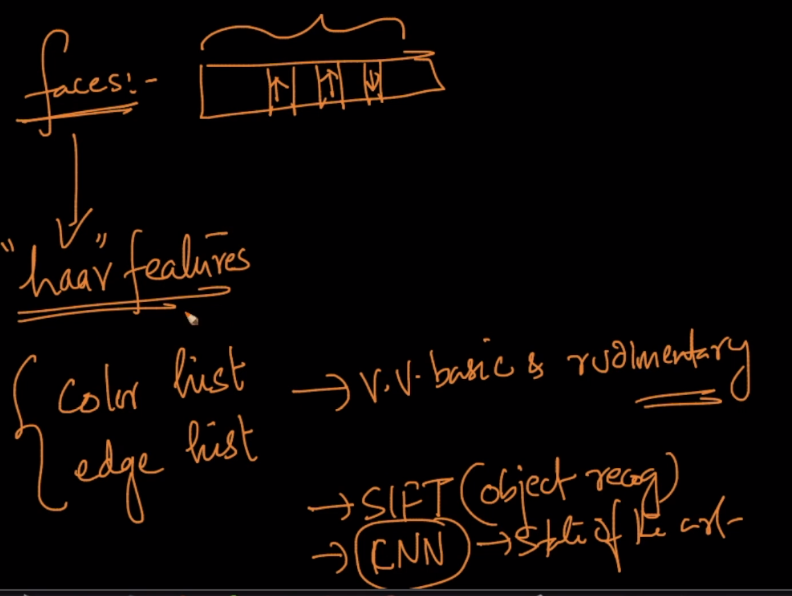 faces:-
"haar" features
color hist → v.v. basic & rudimentary
edge hist
→ SIFT (object recog)
→ CNN → State of the art